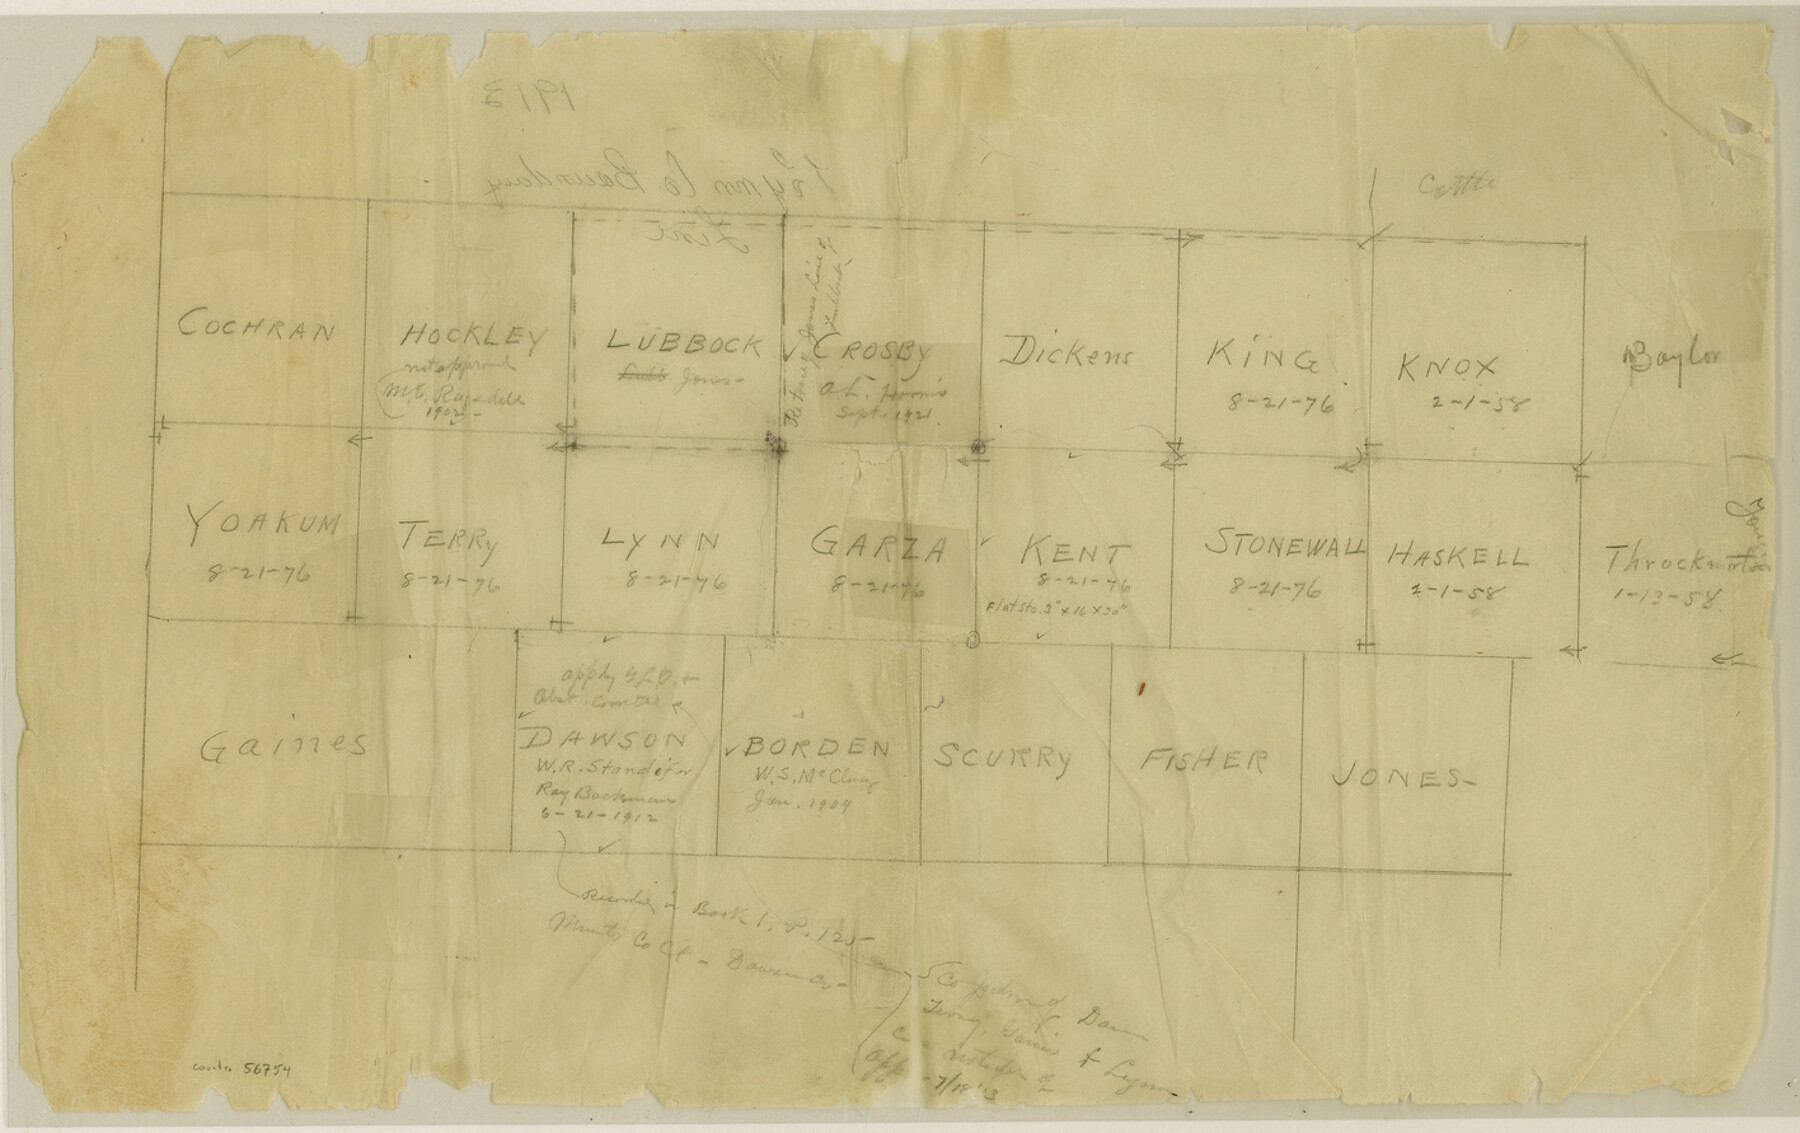 1913
Lynn Co Boundary
Line
Cottle
COCHRAN
HOCKLEY
not approved
M.E. Ragsdale
1902-
LUBBOCK
Lubb. Jones-
Retrace Jones Line of
Lubbock
CROSBY
O.L. Harris
Sept. 1921.
Dickens
KING
8-21-76
KNOX
2-1-58
Baylor
YOAKUM
8-21-76
TERRY
8-21-76
LYNN
8-21-76
GARZA
8-21-76
KENT
8-21-76
Flat Sto. 3" x 16 x 30"
STONEWALL
8-21-76
HASKELL
2-1-58
Throckmorton
1-13-58
Young
Gaines
apply GLO. +
Abst. Countie
DAWSON
W.R. Standefer
Ray Buckman
6-21-1912
BORDEN
W.S. McClung
Jan. 1909
SCURRY
FISHER
JONES-
Recorded in Book 1, P. 125-
Minutes Co Ct - Dawson Co-
Co
Terry, Gaines & Lynn
of
app - 7/18 '13
counter 56754